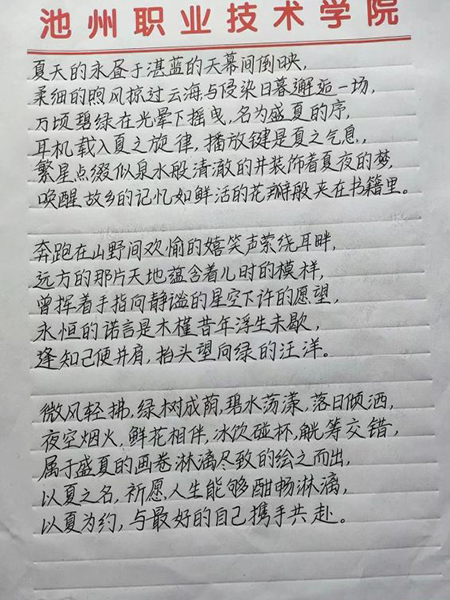 池州职业技术学院
夏天的永昼于湛蓝的天幕间倒映,
柔细的煦风掠过云海与侵染日暮邂逅一场,
万顷碧绿在光晕下摇曳,名为盛夏的序,
耳机载入夏之旋律,播放键是夏之气息,
繁星点缀似泉水般清澈的井装饰着夏夜的梦,
唤醒故乡的记忆如鲜活的花瓣般夹在书籍里。
奔跑在山野间欢愉的嬉笑声萦绕耳畔,
远方的那片天地蕴含着儿时的模样,
曾挥着手指向静谧的星空下许的愿望,
永恒的诺言是木槿昔年浮生未歇,
逢知己便并肩,抬头望向绿的汪洋。
微风轻拂,绿树成荫,碧水荡漾,落日倾洒,
夜空烟火,鲜花相伴,冰饮碰杯,觥筹交错,
属于盛夏的画卷淋漓尽致的绘之而出,
以夏之名,祈愿人生能够酣畅淋漓,
以夏为约,与最好的自己携手共赴。